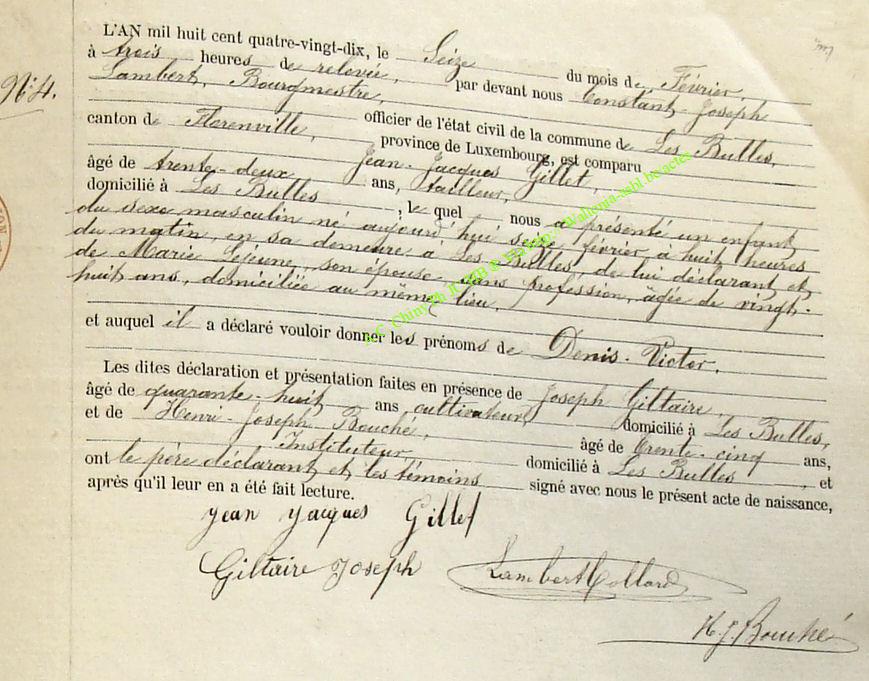 N° 4.
L'AN mil huit cent quatre-vingt-dix, le Seize du mois de Février,
à trois heures de relevée, par devant nous Constant-Joseph
Lambert, Bourgmestre,
officier de l'état civil de la commune de Les Bulles,
canton de Florenville, province de Luxembourg, est comparu
Jean-Jacques Gillet,
âgé de trente-deux ans, tailleur,
domicilié à Les Bulles, le quel nous a présenté un enfant
du sexe masculin né aujourd'hui seize février à huit heures
du matin, en sa demeure à Les Bulles, de lui déclarant et
de Marie Lejeune, son épouse, sans profession, âgée de vingt-
huit ans, domiciliée au même lieu,
et auquel il a déclaré vouloir donner les prénoms de Denis-Victor.
Les dites déclaration et présentation faites en présence de Joseph Giltaire,
âgé de quarante-huit ans, cultivateur, domicilié à Les Bulles,
et de Henri-Joseph Bouché, âgé de trente-cinq ans,
Instituteur, domicilié à Les Bulles, et
ont le père déclarant et les témoins signé avec nous le présent acte de naissance,
après qu'il leur en a été fait lecture.
Jean Jacques Gillet
Giltaire Joseph Lambert Collard
H. J. Bouché